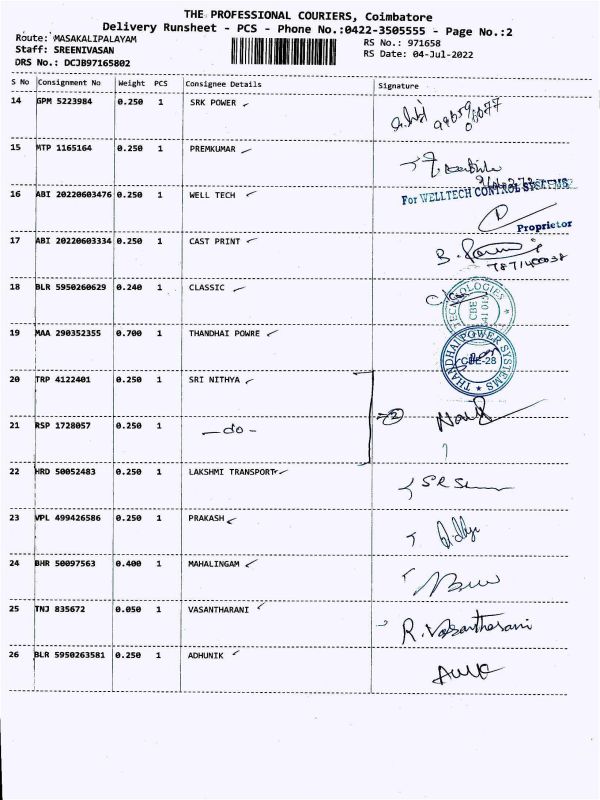 THE PROFESSIONAL COURIERS, Coimbatore
Delivery Runsheet - PCS - Phone No.:0422-3505555 - Page No.:2
Route: MASAKALIPALAYAM
RS No.: 971658
Staff: SREENIVASAN
RS Date: 04-Jul-2022
DRS No.: DCJB97165802
S No Consignment No Weight PCS Consignee Details Signature
14 GPM 5223984 0.250 1 SRK POWER
15 MTP 1165164 0.250 1 PREMKUMAR
16 ABI 20220603476 0.250 1 WELL TECH
For WELLTECH CONTROL SYSTEMS
Proprietor
17 ABI 20220603334 0.250 1 CAST PRINT
18 BLR 5950260629 0.240 1 CLASSIC
19 MAA 290352355 0.700 1 THANDHAI POWRE
THANDHAI POWER SYSTEMS
CBE-28
20 TRP 4122401 0.250 1 SRI NITHYA
21 RSP 1728057 0.250 1 -do-
2
22 HRD 50052483 0.250 1 LAKSHMI TRANSPORT
23 VPL 499426586 0.250 1 PRAKASH
24 BHR 50097563 0.400 1 MAHALINGAM
25 TNJ 835672 0.050 1 VASANTHARANI R. Vasantharani
26 BLR 5950263581 0.250 1 ADHUNIK